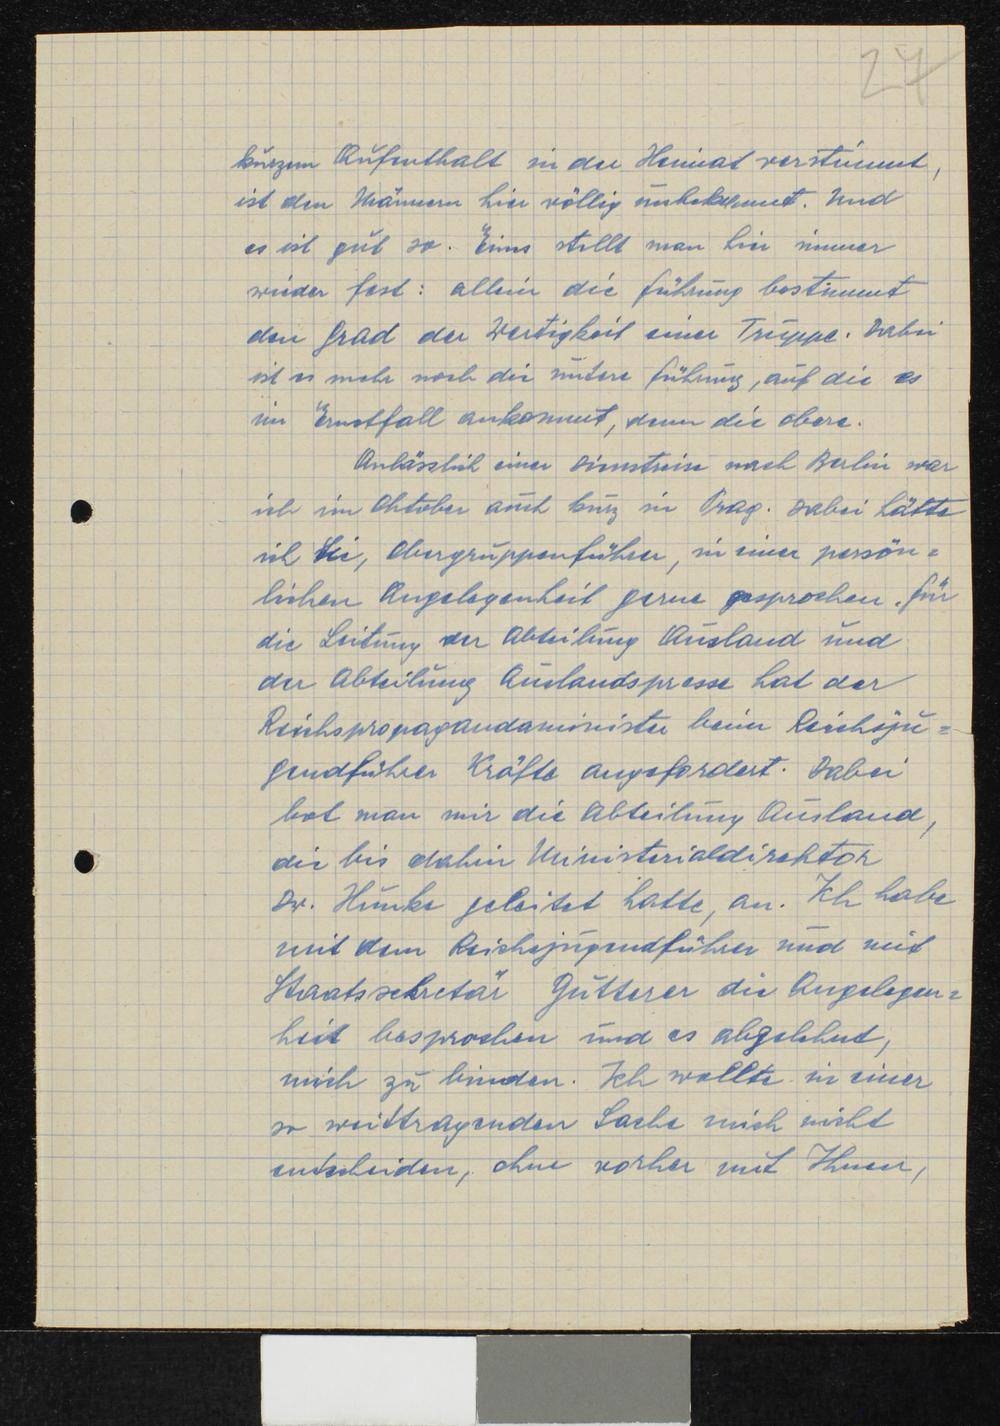 27
kurzem Aufenthalt in der Heimat verstimmt,
ist den Männern hier völlig unbekannt. Und
es ist gut so. Eins stellt man hier immer
wieder fest: allein die Führung bestimmt
den Grad der Wertigkeit einer Truppe. Dabei
ist es mehr noch die untere Führung, auf die es
im Ernstfall ankommt, denn die obere.
Anlässlich einer Dienstreise nach Berlin war
ich im Oktober auch kurz in Prag. Dabei hätte
ich Sie, Obergruppenführer, in einer persön=
lichen Angelegenheit gerne gesprochen. Für
die Leitung der Abteilung Ausland und
der Abteilung Auslandspresse hat der
Reichspropagandaminister beim Reichsju=
gendführer Kräfte angefordert. Dabei
bot man mir die Abteilung Ausland,
die bis dahin Ministerialdirektor
Dr. Hunke geleitet hatte, an. Ich habe
mit dem Reichsjugendführer und mit
Staatssekretär Gutterer die Angelegen=
heit besprochen und es abgelehnt,
mich zu binden. Ich wollte in einer
so weittragenden Sache mich nicht
entscheiden, ohne vorher mit Ihnen,